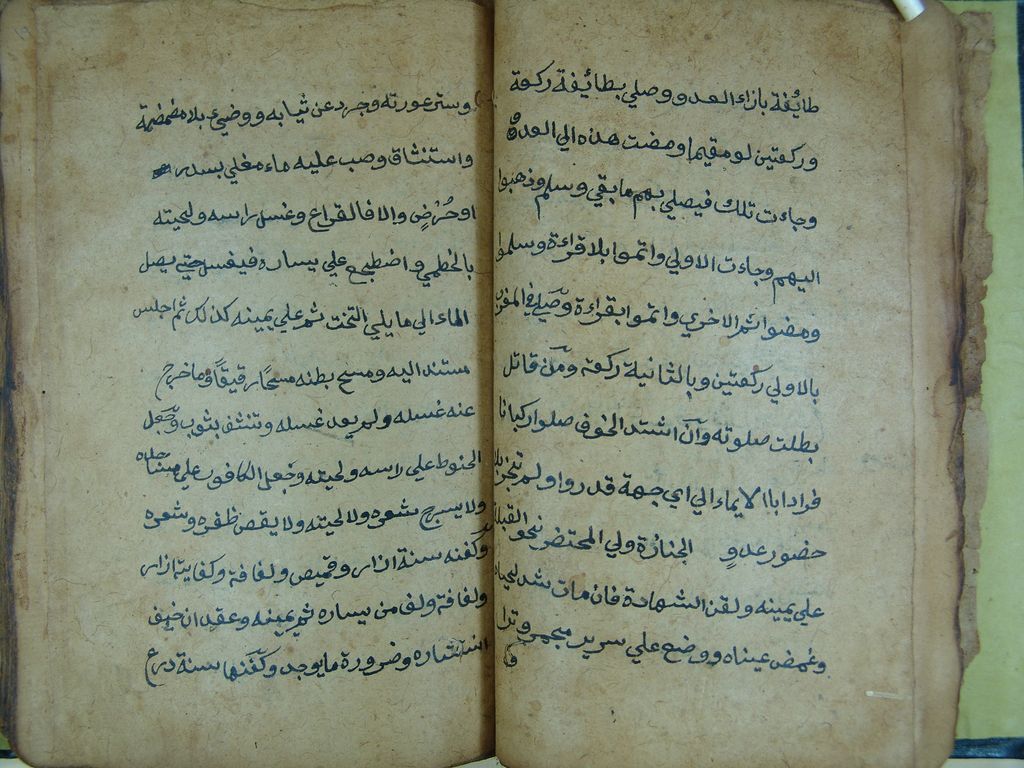 طائفة بازاء العدو وصلي بطائفة ركعة
وركعتين لو مقيما ومضت هذه الي العدو
وجاءت تلك فيصلي بهم ما بقي وسلم وذهبوا
اليهم وجاءت الاولي واتموا بلا قراءة وسلموا
ومضوا ثم الاخري واتموا بقراءة وصلي في المغرب
بالاولي ركعتين وبالثانية ركعة ومن قاتل
بطلت صلوته وان اشتد الخوف صلوا ركبانا
فرادا باالايماء الي اي جهة قدروا ولم تجز بلا
حضور عدو الجنازة ولي المحتضر نحو القبلة
علي يمينه ولقن الشهادة فان مات شد لحياه
وغمض عيناه ووضع علي سرير مجمر وترا
و
وستر عورته وجرد عن ثيابه ووضي بلا مضمضة
واستنشاق وصب عليه ماء مغلي بسدر
او حرض والا فالقراع وغسل راسه ولحيته
بالخطمي واضطجع علي يساره فيغسل حتي يصل
الماء الي ما يلي التخت ثم علي يمينه كذلك ثم اجلس
مستندا اليه ومسح بطنه مسحا رقيقا وما خرج
عنه غسله ولم يعد غسله وتنشف بثوب وجعل
الحنوط علي راسه ولحيته وجعل الكافور علي مساجده
ولا يسرح شعره ولا لحيته ولا يقص ظفره وشعره
وكفنه سنة ازار وقميص ولفافة وكفاية ازار
ولفافة ولف من يساره ثم يمينه وعقد ان خيف
انتشاره وضرورة ما يوجد وكفنها سنة درع